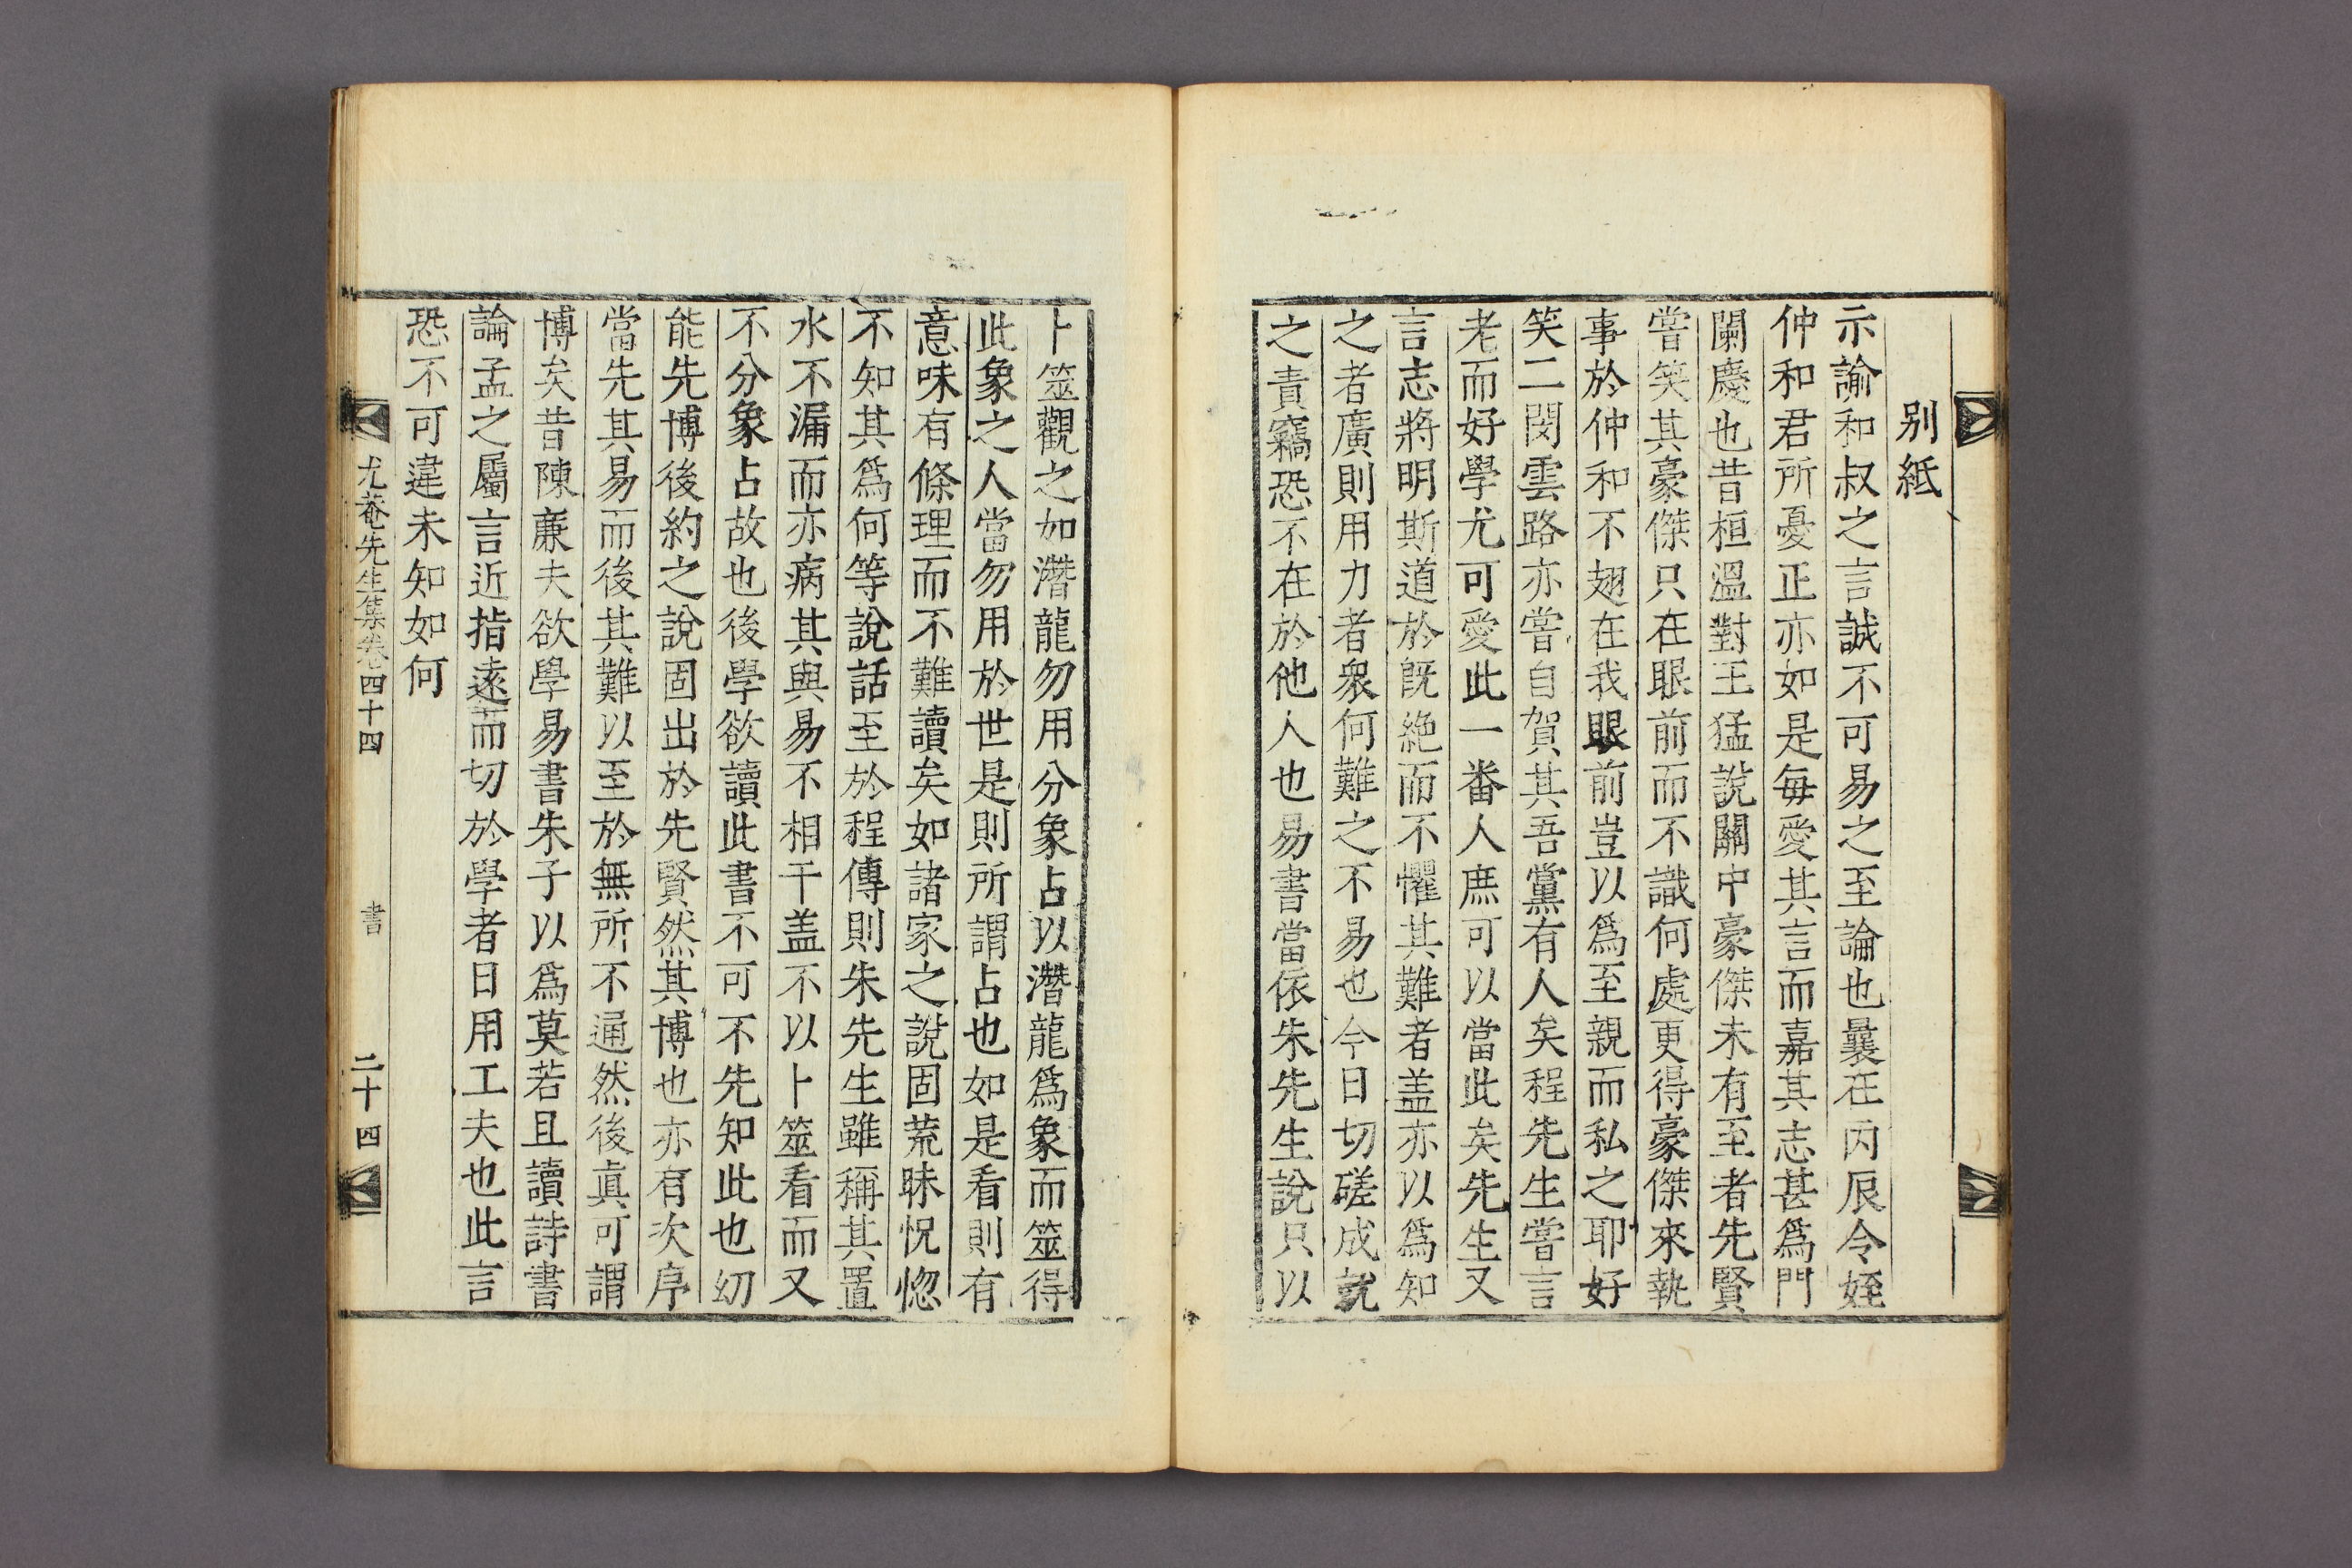 別紙
示諭和叔之言誠不可易之至論也曩在丙辰令姪
仲和君所憂正亦如是每愛其言而嘉其志甚爲門
闌慶也昔桓溫對王猛說關中豪傑未有至者先賢
嘗笑其豪傑只在眼前而不識何處更得豪傑來執
事於仲和不翅在我眼前豈以爲至親而私之耶好
笑二閔雲路亦嘗自賀其吾黨有人矣程先生嘗言
老而好學尤可愛此一番人庶可以當此矣先生又
言志將明斯道於旣絶而不懼其難者盖亦以爲知
之者廣則用力者衆何難之不易也今日切磋成就
之責竊恐不在於他人也易書當依朱先生說只以
卜筮觀之如潛龍勿用分象占以潛龍爲象而筮得
此象之人當勿用於世是則所謂占也如是看則有
意味有條理而不難讀矣如諸家之說固荒昧怳惚
不知其爲何等說話至於程傳則朱先生雖稱其置
水不漏而亦病其與易不相干盖不以卜筮看而又
不分象占故也後學欲讀此書不可不先知此也幼
能先博後約之說固出於先賢然其博也亦有次序
當先其易而後其難以至於無所不通然後眞可謂
博矣昔陳廉夫欲學易書朱子以爲莫若且讀詩書
論孟之屬言近指遠而切於學者日用工夫也此言
恐不可違未知如何
尤菴先生集卷四十四 書 二十四